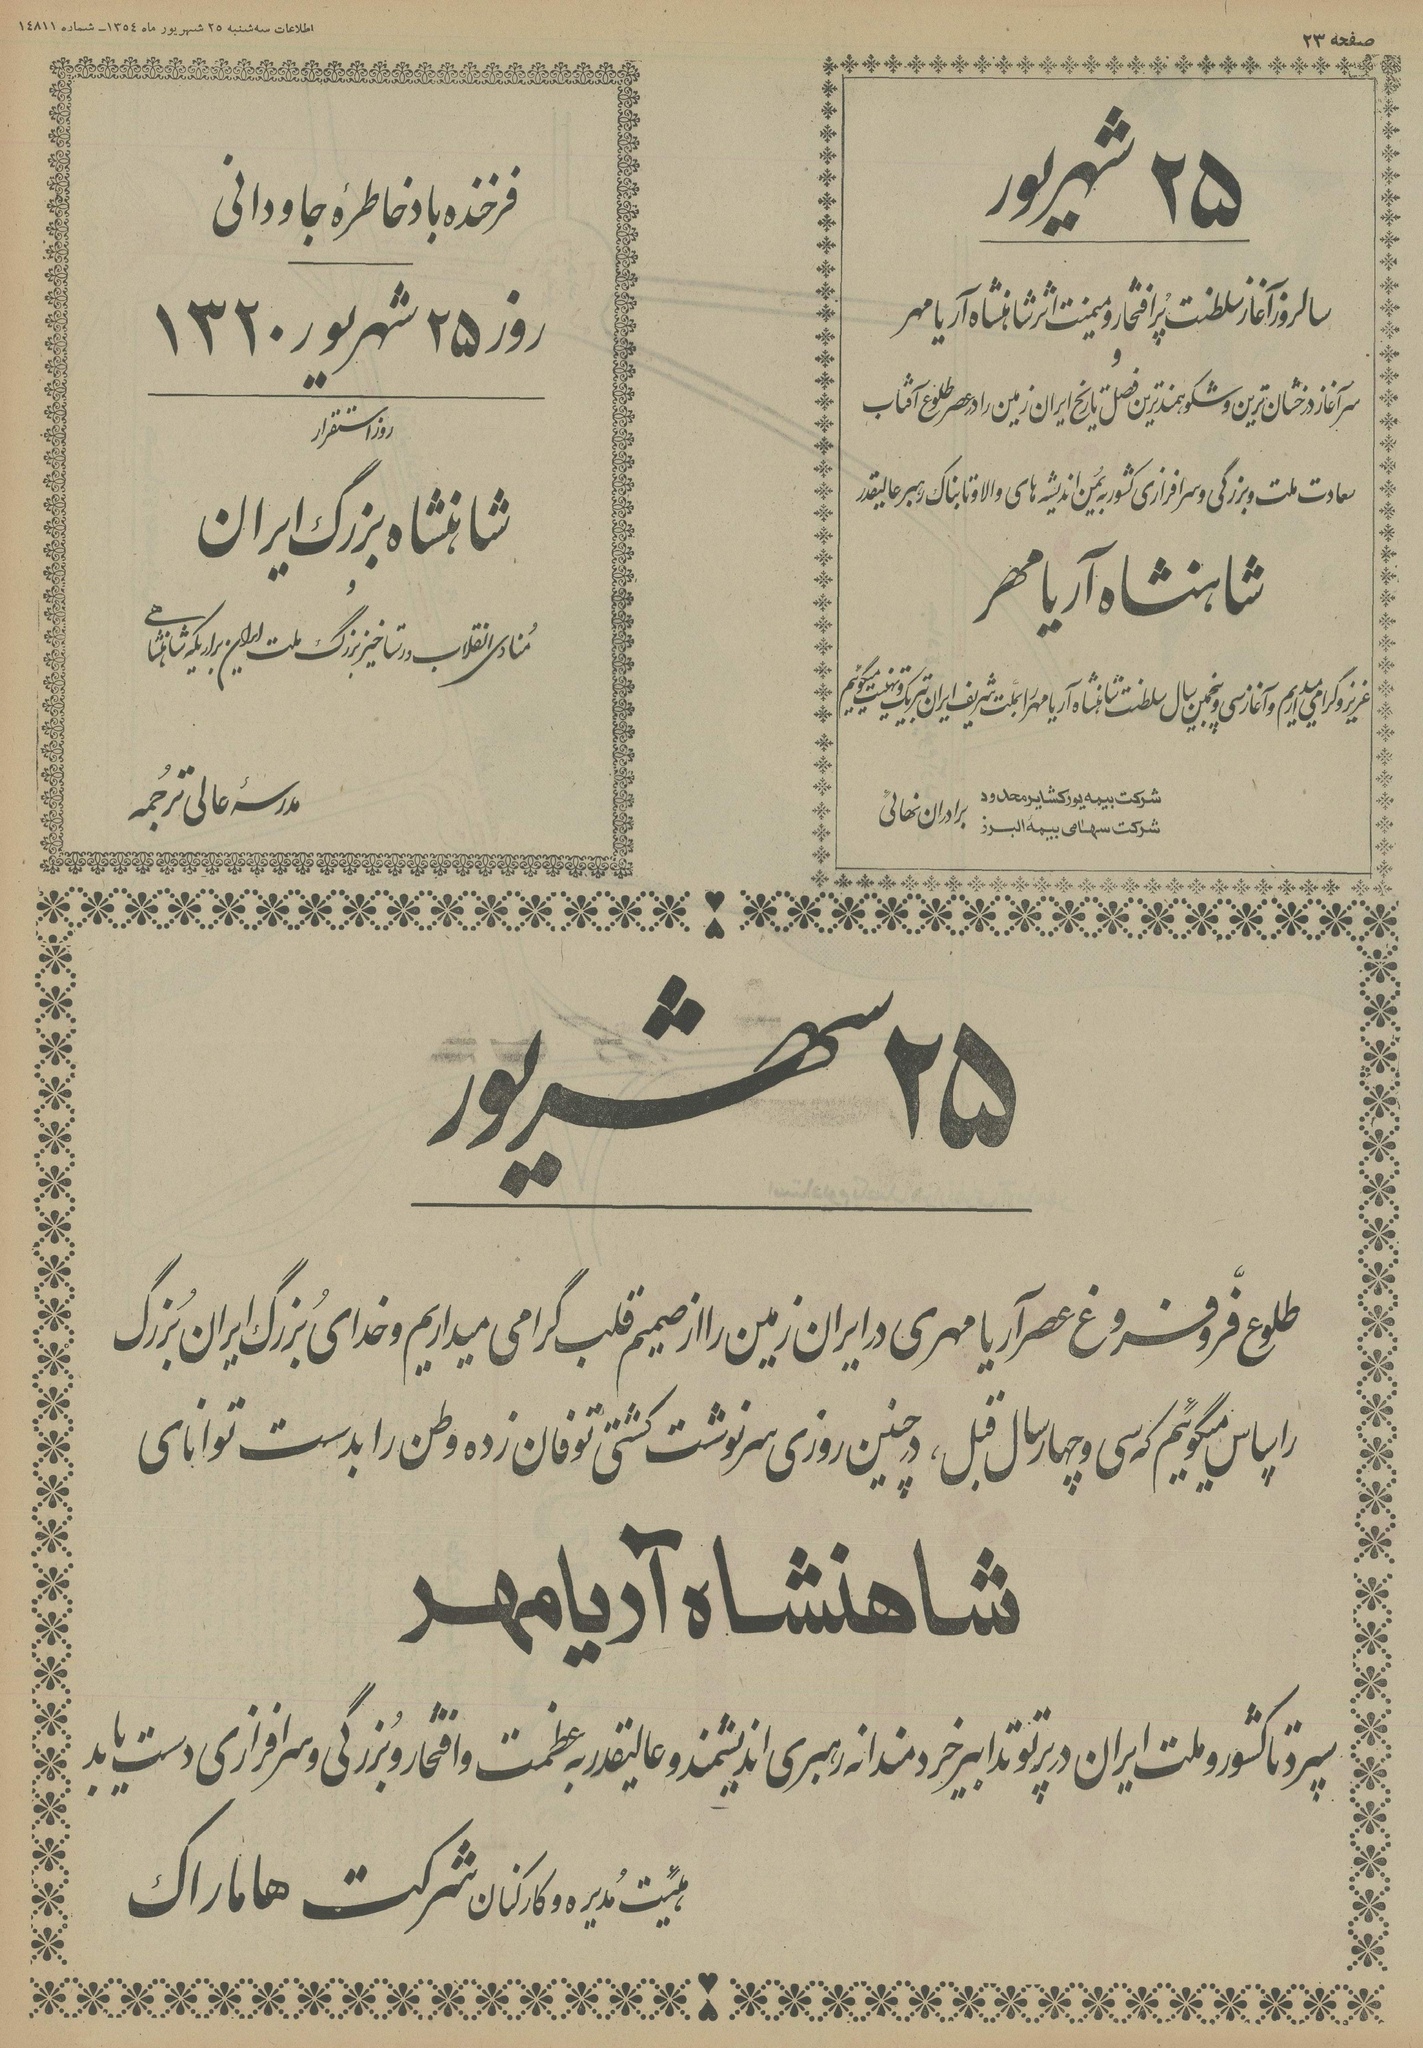 صفحه ۲۳
اطلاعات سه‌شنبه ۲۵ شهریور ماه ۱۳۵۴ـ شماره ۱۴۸۱۱
۲۵ شهریور
سالروز آغاز سلطنت پُرافتخار و میمنت اثر شاهنشاه آریامهر
و
سرآغاز درخشان ترین و شکوهمندترین فصل تاریخ ایران زمین را در عصر طلوع آفتاب
سعادت ملت و بزرگی و سرافرازی کشور به یُمن اندیشه های والا و تابناک رهبر عالیقدر
شاهنشاه آریامهر
عزیز و گرامی میداریم و آغاز سی و پنجمین سال سلطنت شاهنشاه آریامهر را بملت شریف ایران تبریک و تهنیت میگوئیم
شرکت بیمه یورکشایر محدود
شرکت سهامی بیمه البرز
برادران نهائی
فرخنده باد خاطرهٔ جاودانی
روز ۲۵ شهریور ۱۳۲۰
روز استقرار
شاهنشاه بزرگ ایران
و
مُنادی انقلاب و رستاخیز بزرگ ملت ایران بر اریکه شاهنشاهی
مدرسهٔ عالی ترجُمه
۲۵ شهریور
طلوع فَرّ و فروغ عصر آریامهری در ایران زمین را از صمیم قلب گرامی میداریم و خدای بُزرگ ایران بُزرگ
را سپاس میگوئیم که سی و چهار سال قبل، در چنین روزی سرنوشت کشتی توفان زده وطن را بدست توانای
شاهنشاه آریامهر
سپرد تا کشور و ملت ایران در پرتو تدابیر خردمندانه رهبری اندیشمند و عالیقدر به عظمت و افتخار و بُزرگی و سرافرازی دست یابد
هیئت مُدیره و کارکنان شرکت هاماراک